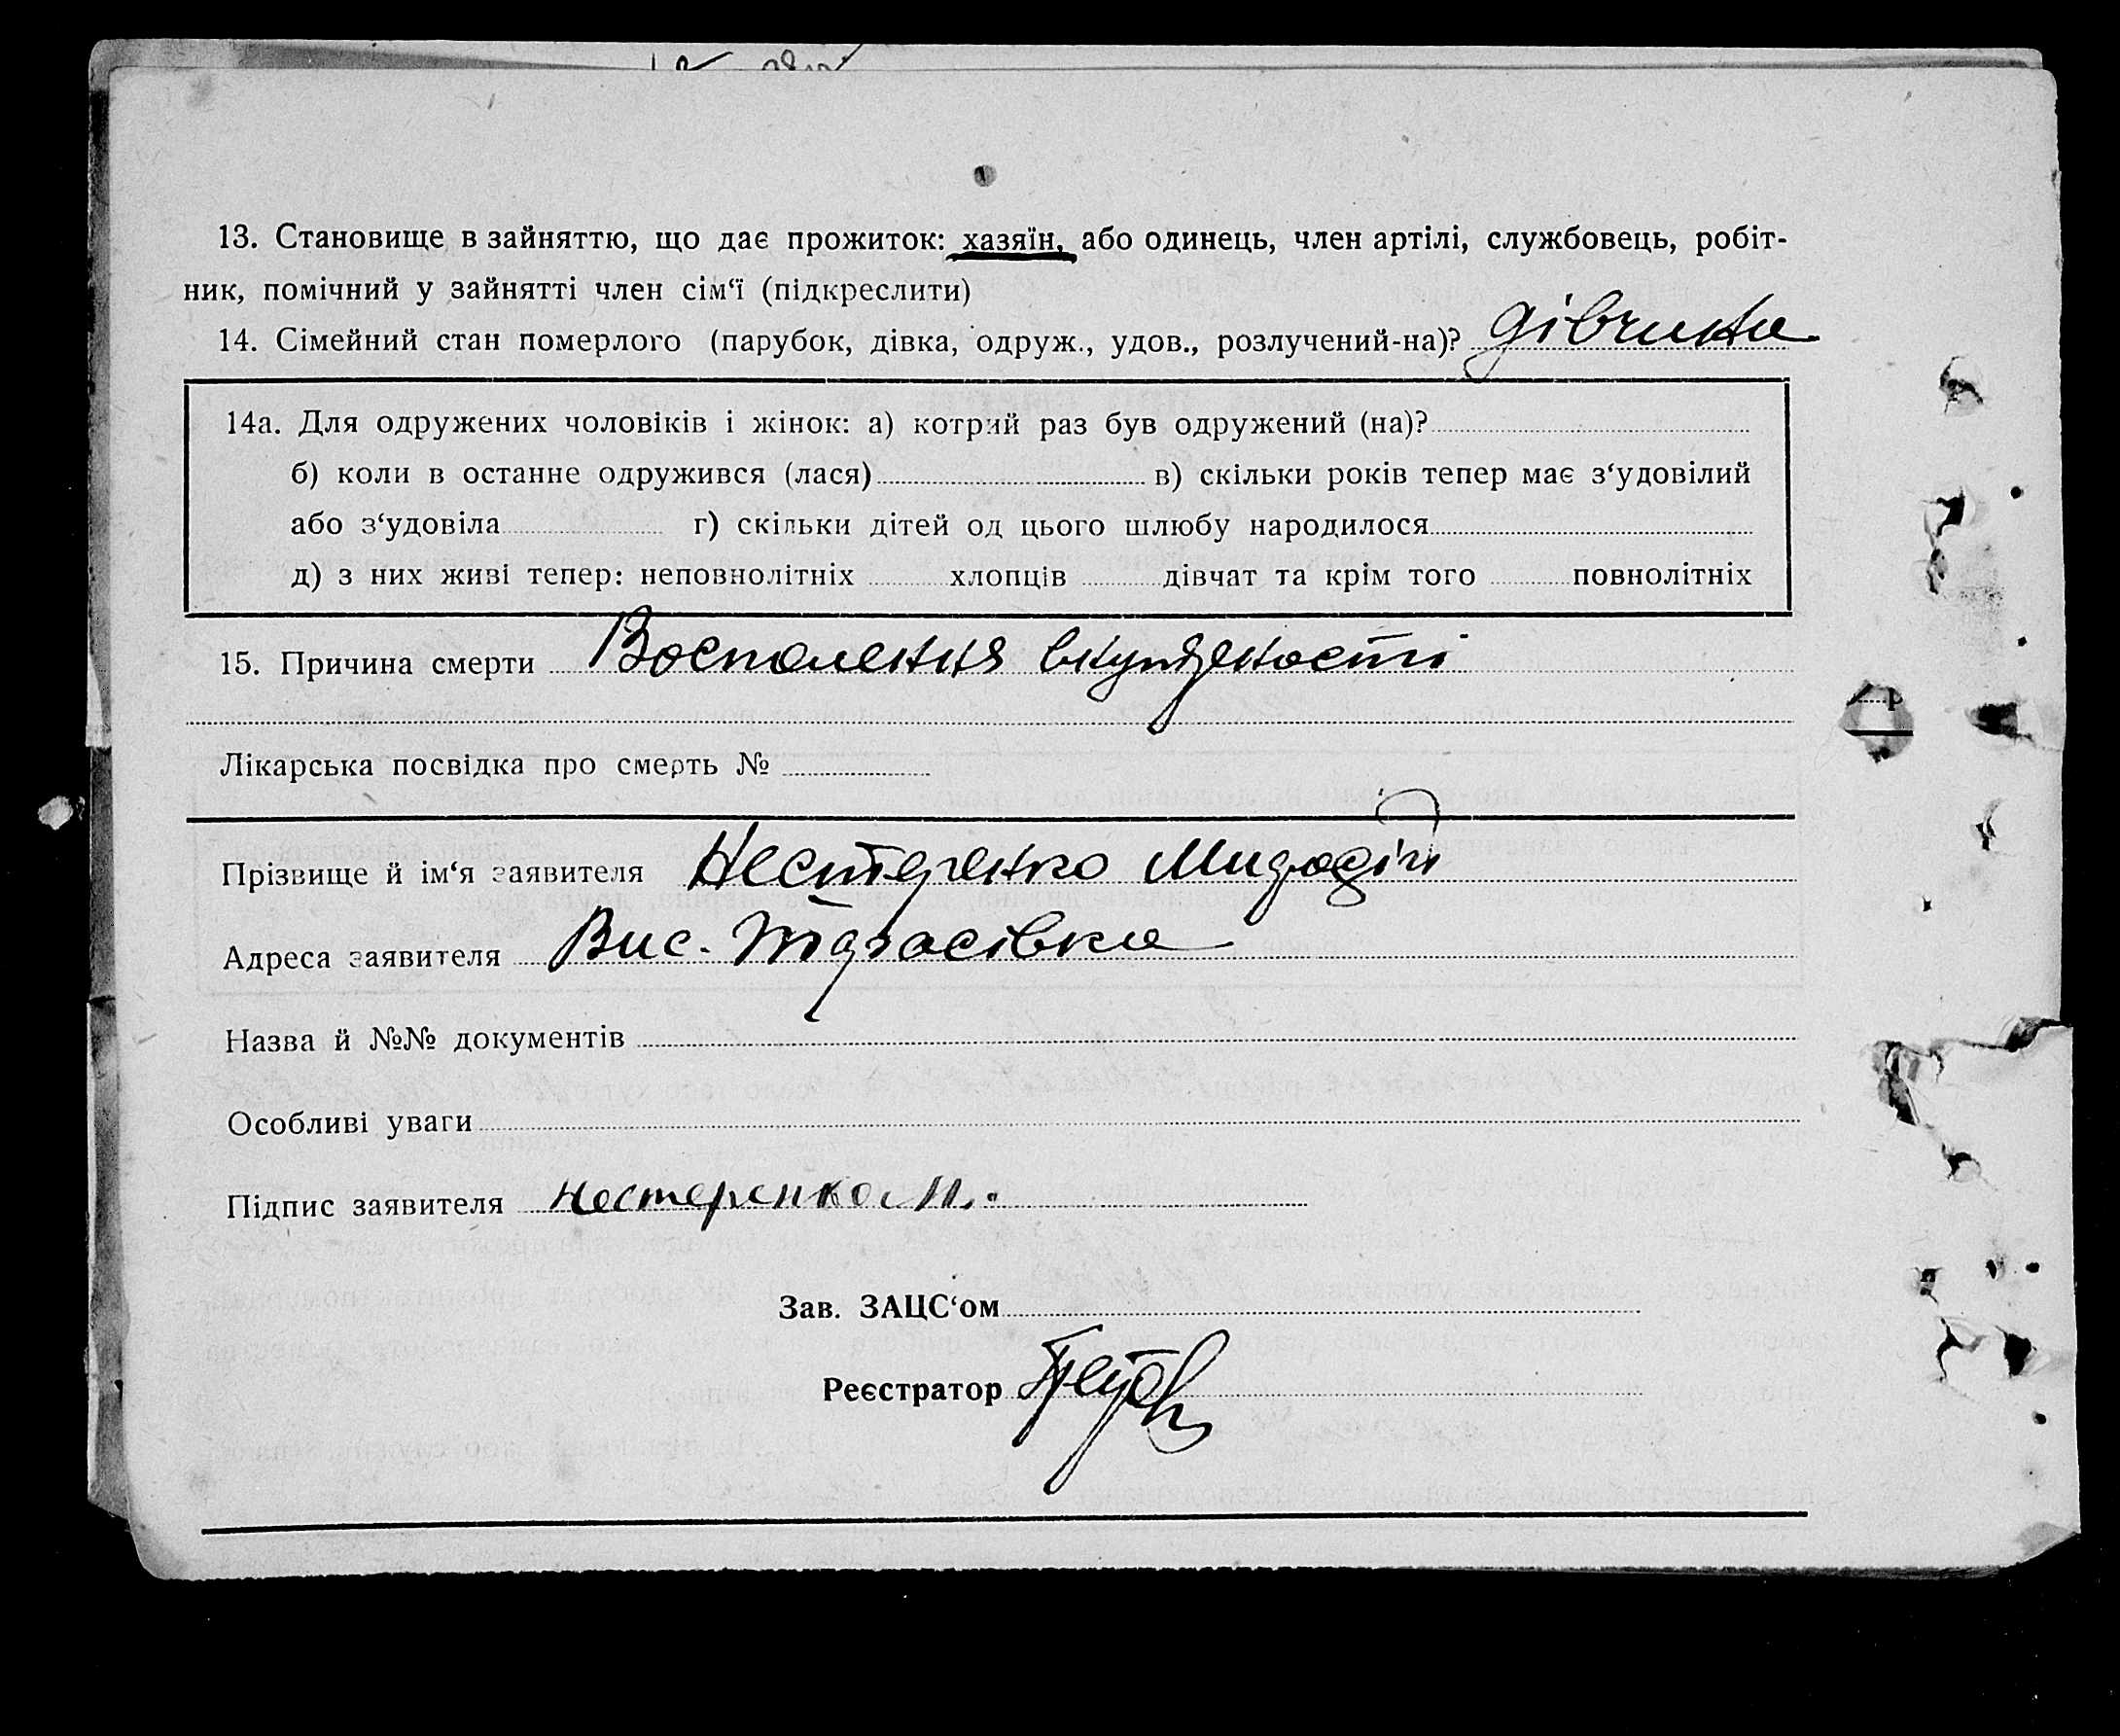 13. Становище в зайняттю, що дає прожиток: хазяїн, або одинець, член артілі, службовець, робіт-
ник, помічний у зайнятті член сім‘ї (підкреслити)
14. Сімейний стан померлого (парубок, дівка, одруж., удов., розлучений-на)? дівчина
14а. Для одружених чоловіків і жінок: а) котрий раз був одружений (на)?
б) коли в останнє одружився (лася) в) скільки років тепер має з‘удовілий
або з‘удовіла г) скільки дітей од цього шлюбу народилося
д) з них живі тепер: неповнолітніх хлопців дівчат та крім того повнолітніх
15. Причина смерти Воспалення внутрености
Лікарська посвідка про смерть №
Прізвище й ім‘я заявителя Нестеренко
Адреса заявителя Вис. Тарасівка
Назва й №№ документів
Особливі уваги
Підпис заявителя Нестеренко М.
Зав. ЗАЦС‘ом
Реєстратор